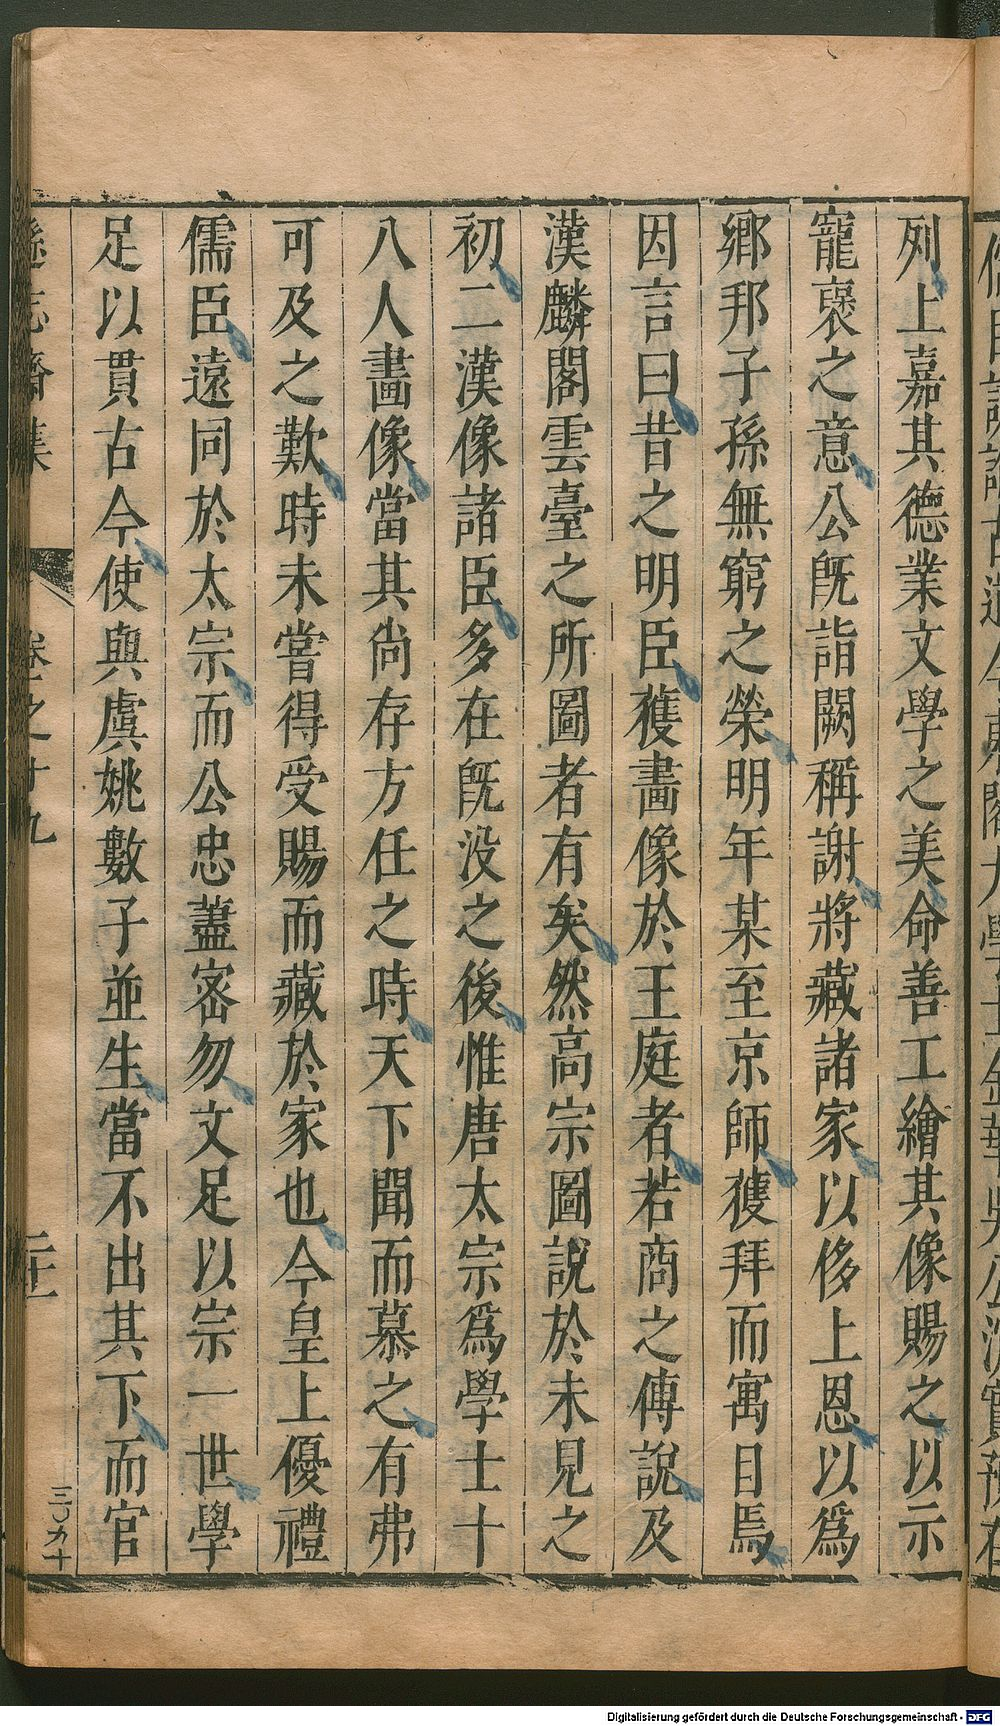 列上嘉其德業文學之美命善工繪其像賜之以示
寵褒之意公既詣闕稱謝將藏諸家以侈上恩以爲
鄉邦子孫無窮之榮明年某至京師獲拜而寓目焉
因言曰昔之明臣獲畫像於王庭者若商之傅說及
漢麟閣雲臺之所圖者有矣然高宗圖說於未見之
初二漢像諸臣多在既没之後惟唐太宗爲學士十
八人畫像當其尚存方任之時天下聞而慕之有弗
可及之歎時未嘗得受賜而藏於家也今皇上優禮
儒臣遠同於太宗而公忠藎密勿文足以宗一世學
足以貫古今使與虞姚數子並生當不出其下而官
遜志齋集
卷之十九
二十
三〇九十
Digitalisierung gefördert durch die Deutsche Forschungsgemeinschaft - DFG